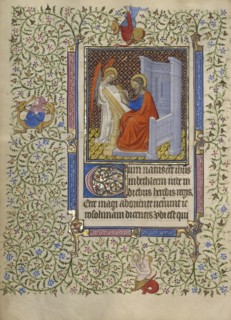 Cum natus esset ihus
in bethleem iude in
diebus herodis regis.
Ecce magi ab oriente uenerunt ie
rosolimam dicentes. Vbi est qui